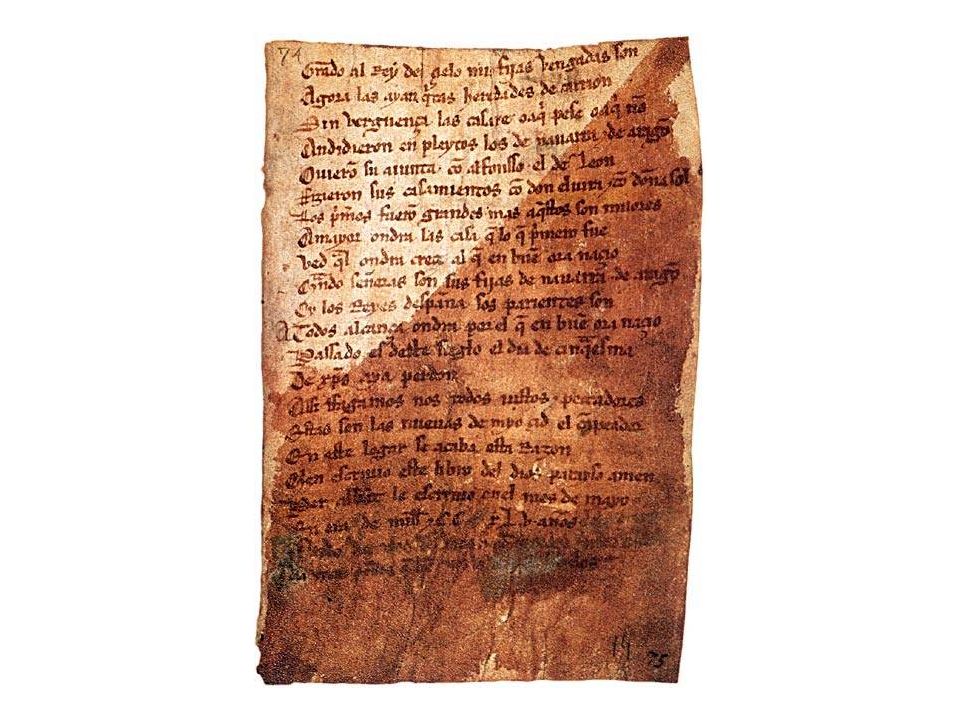 74
Grado al Rey del çielo mis fijas vengadas son
Agora las ayan q̃tas heredades de carrion
Sin verguença las casare o aq̃ pese o aq̃ nõ
Andidieron en pleytos los de nauarra ⁊ de aragõ
Ouierõ su aiunta cõ alfonsso el de Leon
Fizieron sus casamientos cõ don eluira ⁊ cõ doña sol
Los p̃meros fuerõ grandes mas aq̃stos son miiores
A mayor ondra las casa q̃ lo q̃ p̃mero fue
Ved q̃l ondra creçe al q̃ en buẽ ora naçio
Quãdo señoras son sus fijas de nauarra ⁊ de aragõ
Oy los Reyes despaña sos parientes son
A Todos alcança ondra por el q̃ en buẽ ora naçio
Passado es deste sieglo el dia de cinq̃esma
De xp̃o aya perdon
Assi ffagamos nos todos iustos ⁊ peccadores
Estas son las nueuas de myo çid el cãpeador
En este logar se acaba esta Razon
Quien escriuio este libro del dios parayso amen
Per abbat le escriuio en el mes de mayo
En era de mill ⁊ C C xL v años
14
75